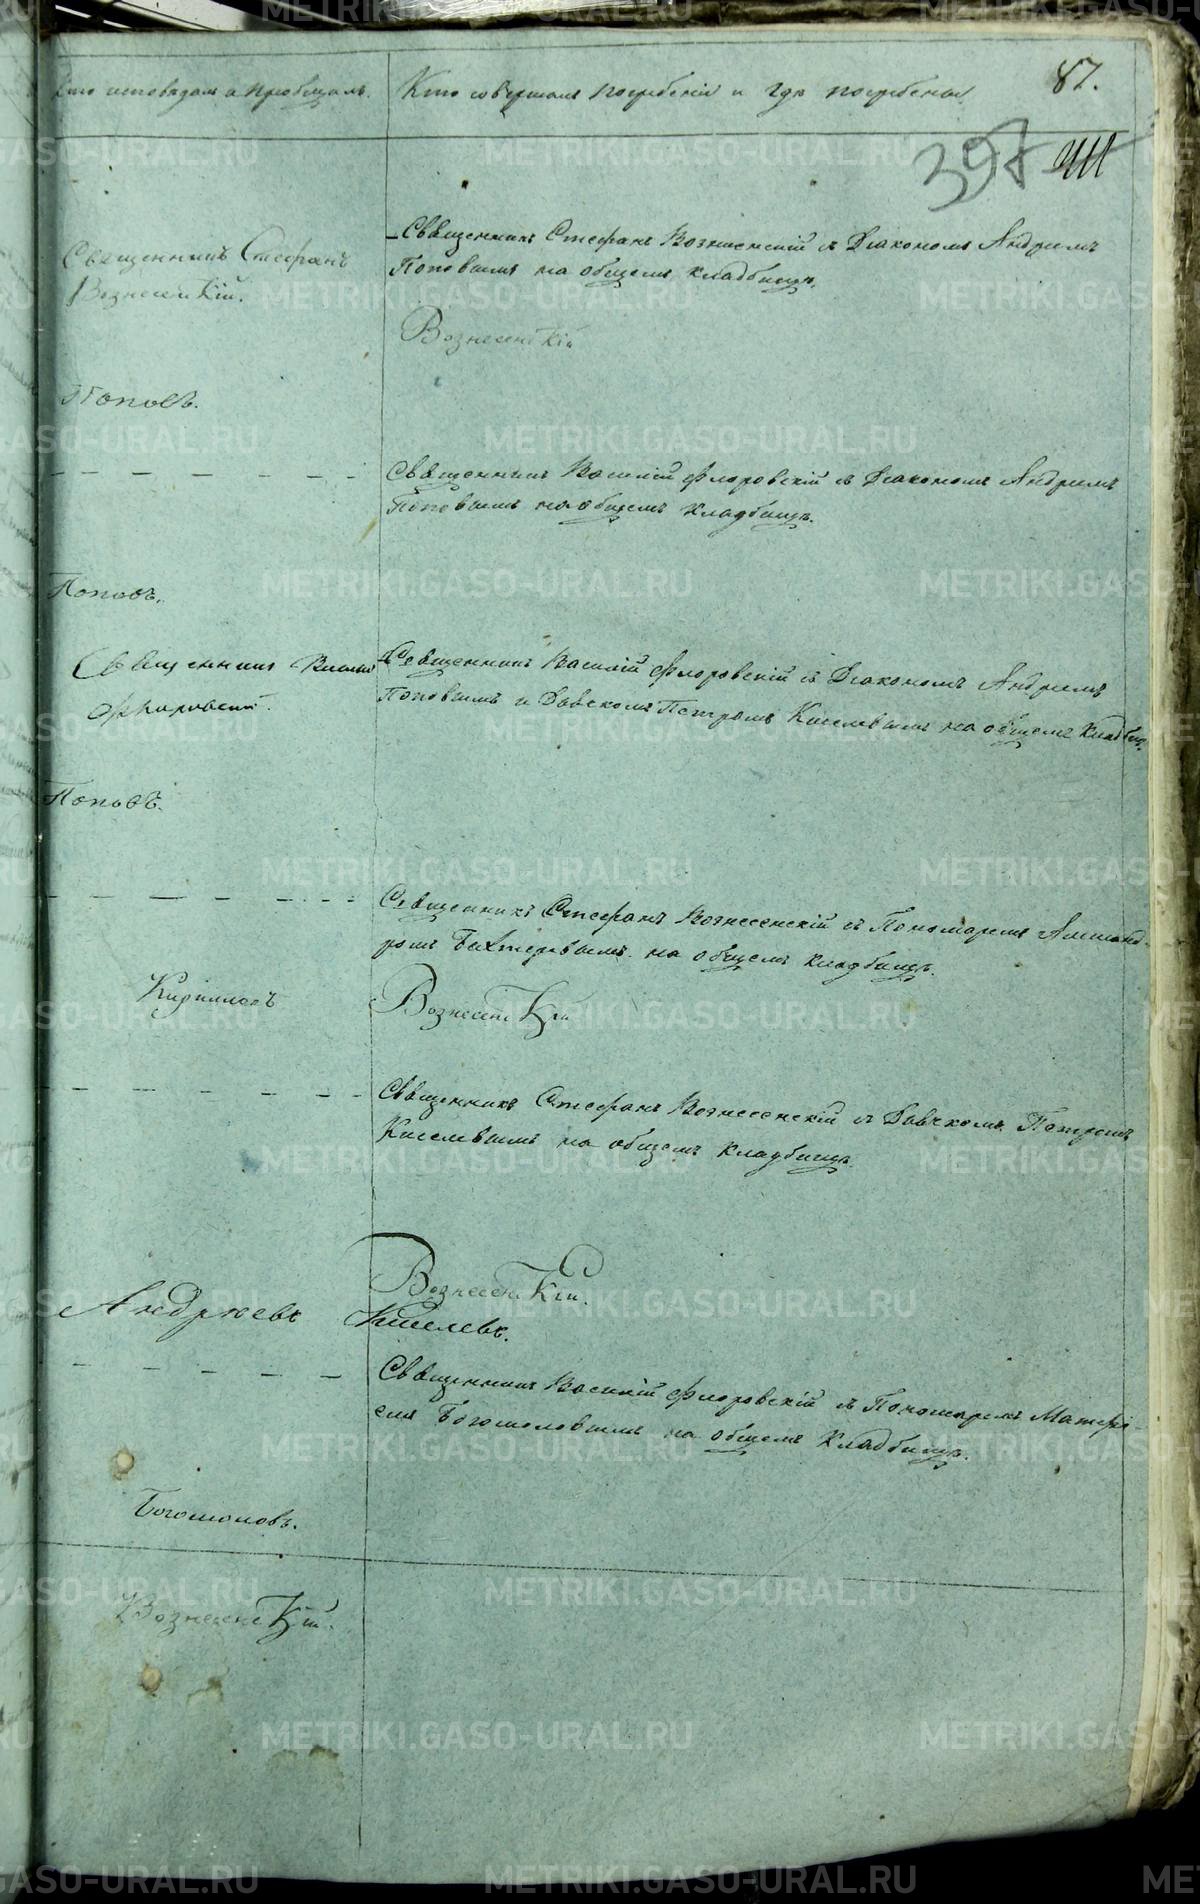 87.
Кто исповѣдалъ и пріобщалъ. Кто совершалъ погребеніе и гдѣ погребены.
397
Священникъ Стефанъ Вознесенскій съ Діакономъ Андреемъ
Поповымъ на общемъ кладбищѣ.
Священникъ Стефанъ
Вознесенскій.
Вознесенскій
Поповъ.
Священникъ Василій Флоровскій съ Діакономъ Андреемъ
Поповымъ на общемъ кладбищѣ.
Поповъ.
Священникъ Василій
Флоровскій.
Священникъ Василій Флоровскій съ Діакономъ Андреемъ
Поповымъ и Дьячкомъ Петромъ Киселевымъ на общемъ кладбищ.
Поповъ.
Священникъ Стефанъ Вознесенскій съ Пономаремъ Александ-
ромъ Бахтеревымъ на общемъ кладбищѣ.
Кирилловъ
Вознесенскій
Священникъ Стефанъ Вознесенскій съ Дьячкомъ Петромъ
Киселевымъ на общемъ кладбищѣ.
Вознесенскій.
Андреевъ Киселевъ.
Священникъ Василій Флоровскій съ Пономаремъ Матфе-
емъ Богомоловымъ на общемъ кладбищѣ.
Богомоловъ.
Вознесенскій.
METRIKI.GASO-URAL.RU